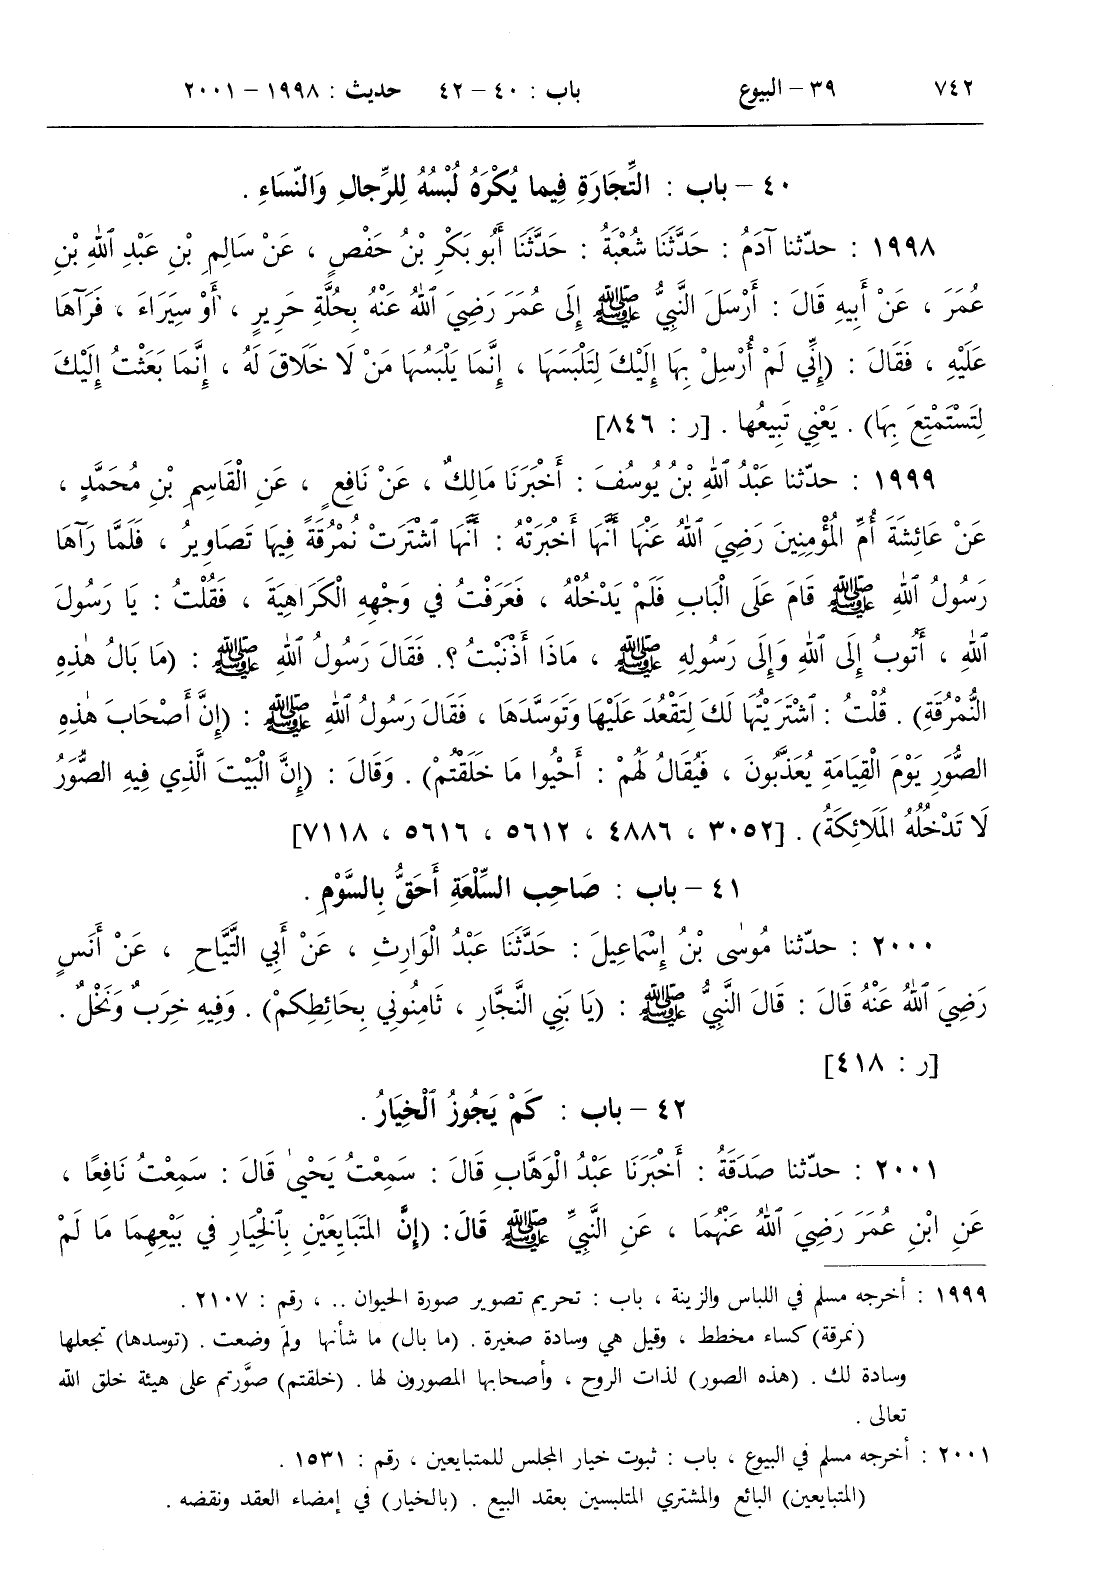 ٧٤٢ ٣٩ – البيوع باب : ٤٠ – ٤٢ حديث : ١٩٩٨ – ٢٠٠١
٤٠ – باب : التِّجَارَةِ فِيما يُكْرَهُ لُبْسُهُ لِلرِّجالِ وَالنِّسَاءِ .
١٩٩٨ : حدّثنا آدَمُ : حَدَّثَنَا شُعْبَةُ : حَدَّثَنَا أَبُو بَكْرِ بْنُ حَفْصٍ ، عَنْ سَالِمِ بْنِ عَبْدِ ٱللهِ بْنِ
عُمَرَ ، عَنْ أَبِيهِ قَالَ : أَرْسَلَ النَّبِيُّ ﷺ إِلَى عُمَرَ رَضِيَ ٱللهُ عَنْهُ بِحُلَّةِ حَرِيرٍ ، أَوْ سِيَرَاءَ ، فَرَآهَا
عَلَيْهِ ، فَقَالَ : (إِنِّي لَمْ أُرْسِلْ بِهَا إِلَيْكَ لِتَلْبَسَهَا ، إِنَّمَا يَلْبَسُهَا مَنْ لَا خَلَاقَ لَهُ ، إِنَّمَا بَعَثْتُ إِلَيْكَ
لِتَسْتَمْتِعَ بِهَا) . يَعْنِي تَبِيعُها . [ر : ٨٤٦]
١٩٩٩ : حدّثنا عَبْدُ ٱللهِ بْنُ يُوسُفَ : أَخْبَرَنَا مَالِكٌ ، عَنْ نَافِعٍ ، عَنِ الْقَاسِمِ بْنِ مُحَمَّدٍ ،
عَنْ عَائِشَةَ أُمِّ المُؤْمِنِينَ رَضِيَ ٱللهُ عَنْهَا أَنَّهَا أَخْبَرَتْهُ : أَنَّهَا ٱشْتَرَتْ نُمْرُقَةً فِيهَا تَصَاوِيرُ ، فَلَمَّا رَآهَا
رَسُولُ ٱللهِ ﷺ قَامَ عَلَى الْبَابِ فَلَمْ يَدْخُلْهُ ، فَعَرَفْتُ في وَجْهِهِ الْكَرَاهِيَةَ ، فَقُلْتُ : يَا رَسُولَ
ٱللهِ ، أَتُوبُ إِلَى ٱللهِ وَإِلَى رَسُولِهِ ﷺ ، مَاذَا أَذْنَبْتُ ؟. فَقَالَ رَسُولُ ٱللهِ ﷺ : (مَا بَالُ هٰذِهِ
النُّمْرُقَةِ) . قُلْتُ : ٱشْتَرَيْتُهَا لَكَ لِتَقْعُدَ عَلَيْهَا وَتَوَسَّدَهَا ، فَقَالَ رَسُولُ ٱللهِ ﷺ : (إِنَّ أَصْحَابَ هٰذِهِ
الصُّوَرِ يَوْمَ الْقِيَامَةِ يُعَذَّبُونَ ، فَيُقَالُ لَهُمْ : أَحْيُوا مَا خَلَقْتُمْ) . وَقَالَ : (إِنَّ الْبَيْتَ الَّذِي فِيهِ الصُّوَرُ
لَا تَدْخُلُهُ المَلَائِكَةُ) . [٣٠٥٢ ، ٤٨٨٦ ، ٥٦١٢ ، ٥٦١٦ ، ٧١١٨]
٤١ – باب : صَاحِب السِّلْعَةِ أَحَقُّ بِالسَّوْمِ .
٢٠٠٠ : حدّثنا مُوسٰى بْنُ إِسْمَاعِيلَ : حَدَّثَنَا عَبْدُ الْوَارِثِ ، عَنْ أَبِي التَّيَّاحِ ، عَنْ أَنَسٍ
رَضِيَ ٱللهُ عَنْهُ قَالَ : قَالَ النَّبِيُّ ﷺ : (يَا بَنِي النَّجَّارِ ، ثَامِنُونِي بِحَائِطِكمْ) . وَفِيهِ خِرَبٌ وَنَخْلٌ .
[ر : ٤١٨]
٤٢ – باب : كَمْ يَجُوزُ ٱلْخِيَارُ .
٢٠٠١ : حدّثنا صَدَقَةُ : أَخْبَرَنَا عَبْدُ الْوَهَّابِ قَالَ : سَمِعْتُ يَحْيىٰ قَالَ : سَمِعْتُ نَافِعًا ،
عَنِ ابْنِ عُمَرَ رَضِيَ ٱللهُ عَنْهُمَا ، عَنِ النَّبِيِّ ﷺ قَالَ: (إِنَّ المُتَبَايِعَيْنِ بِٱلْخِيَارِ في بَيْعِهِمَا مَا لَمْ
١٩٩٩ : أخرجه مسلم في اللباس والزينة ، باب : تحريم تصوير صورة الحيوان .. ، رقم : ٢١٠٧ .
(نمرقة) كساء مخطط ، وقيل هي وسادة صغيرة . (ما بال) ما شأنها ولمَ وضعت . (توسدها) تجعلها
وسادة لك . (هذه الصور) لذات الروح ، وأصحابها المصورون لها . (خلقتم) صوَّرتم على هيئة خلق الله
تعالى .
٢٠٠١ : أخرجه مسلم في البيوع ، باب : ثبوت خيار المجلس للمتبايعين ، رقم : ١٥٣١ .
(المتبايعين) البائع والمشتري المتلبسين بعقد البيع . (بالخيار) في إمضاء العقد ونقضه .